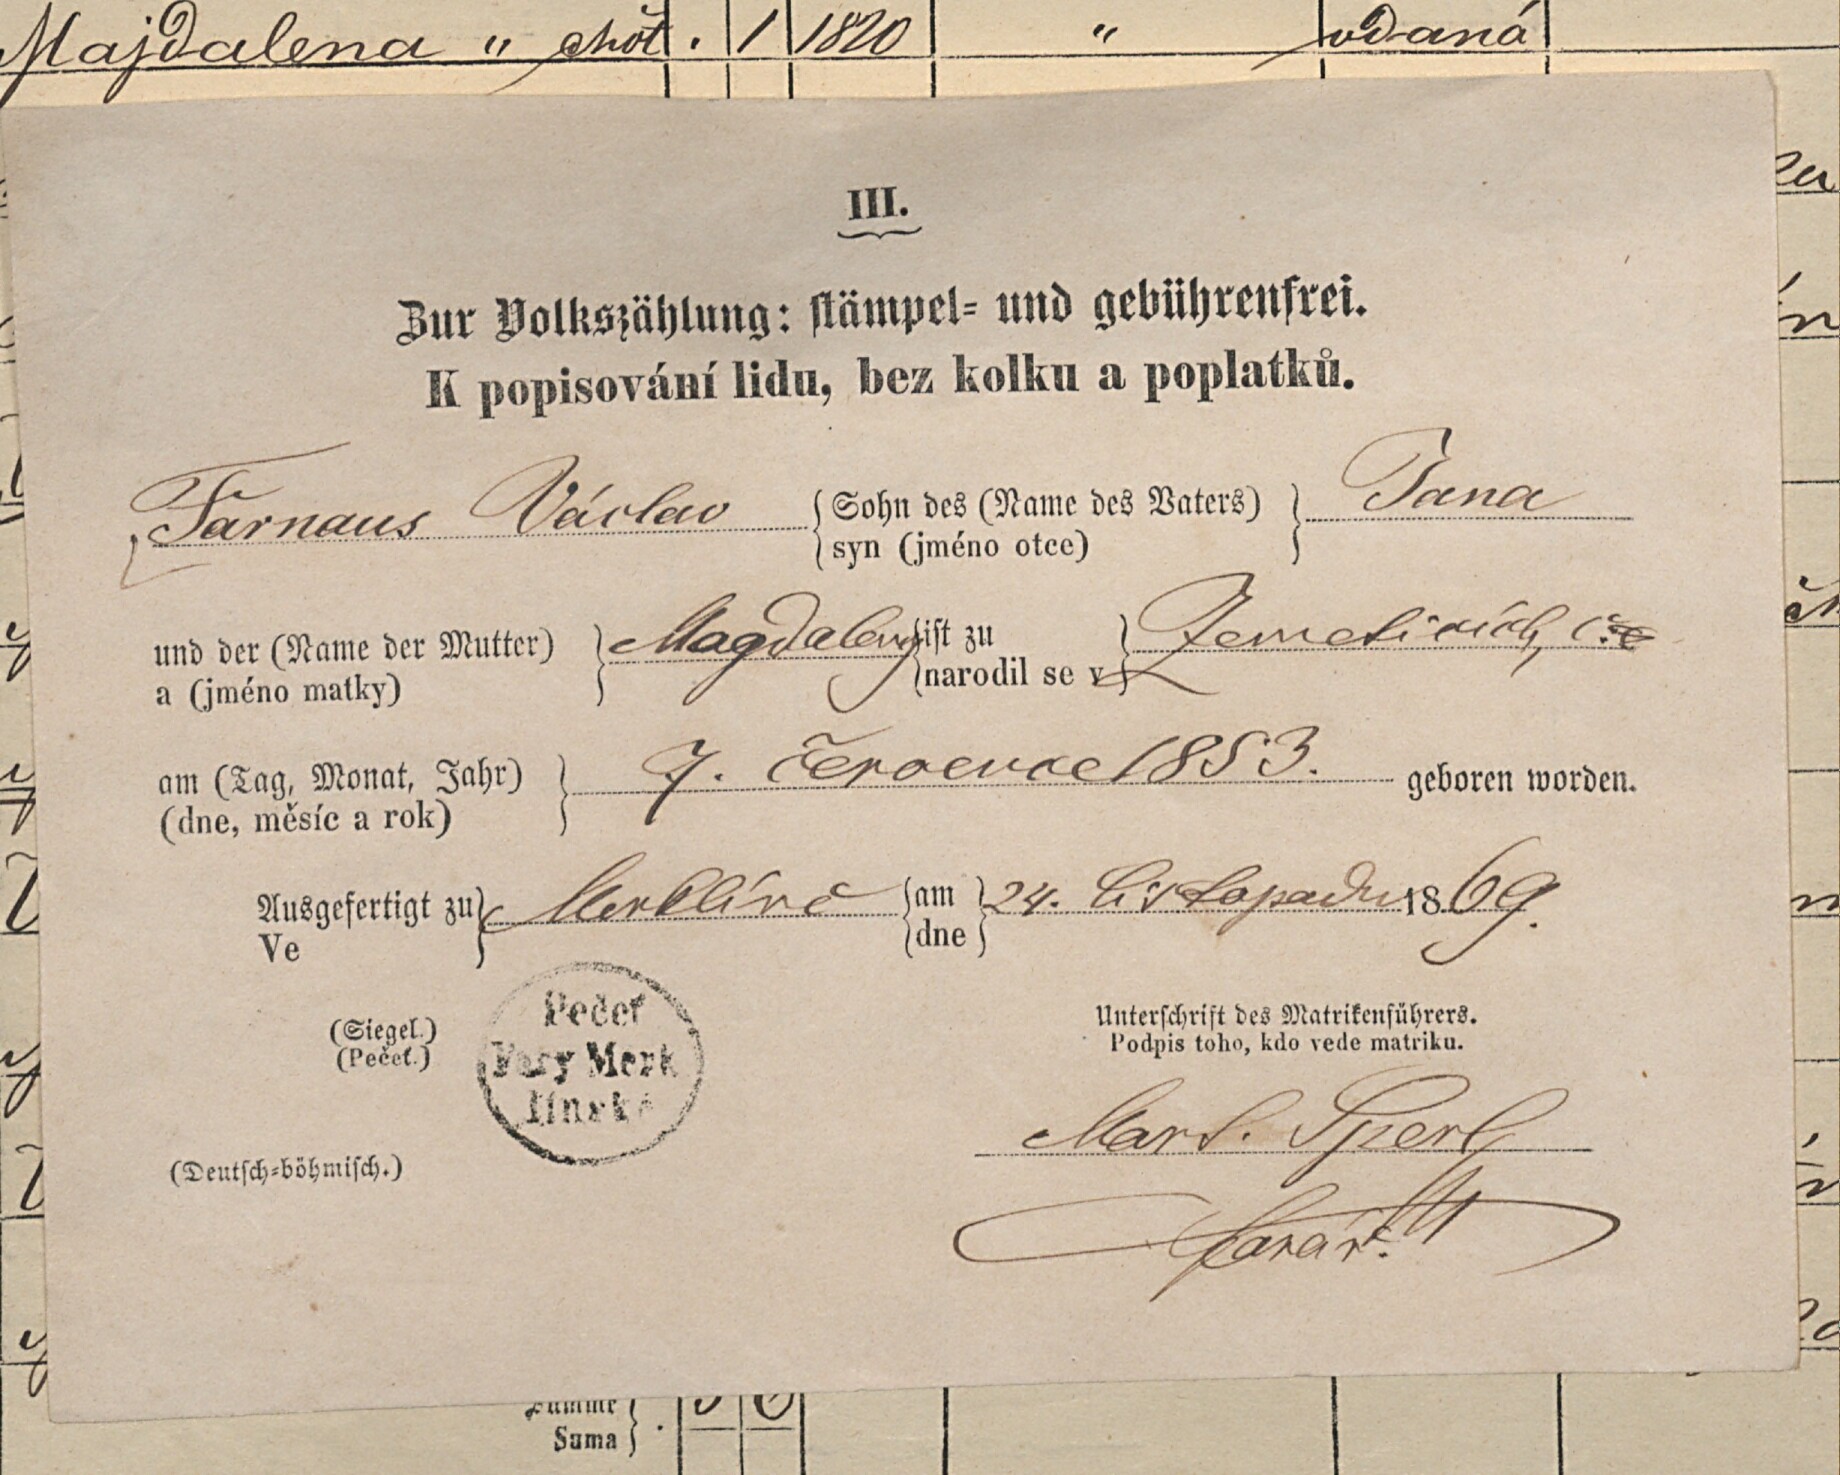 Majdalena " choť . 1 1820 " vdaná
III.
Zur Volkszählung: stämpel- und gebührenfrei.
K popisování lidu, bez kolku a poplatků.
Farnaus Václav { Sohn des (Name des Vaters) } Jana
syn (jméno otce)
und der (Name der Mutter) } Magdaleny { ist zu }
a (jméno matky) narodil se v
am (Tag, Monat, Jahr) } 7. července 1853. geboren worden.
(dne, měsíc a rok)
Ausgefertigt zu } Merklíně { am } 24. Listopadu 1869.
Ve dne
(Siegel.)
(Pečeť.)
Pečeť
Fary Merk
línské
Unterschrift des Matrikenführers.
Podpis toho, kdo vede matriku.
Mart. Sperl
farář.
(Deutsch-böhmisch.)
Summe
Suma